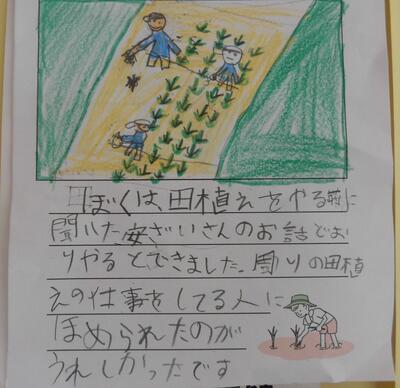 ぼくは、田植えをやる前に
聞いた安ざいさんのお話どお
りやるとできました。周りの田植
えの仕事をしてる人に
ほめられたのが
うれしかったです